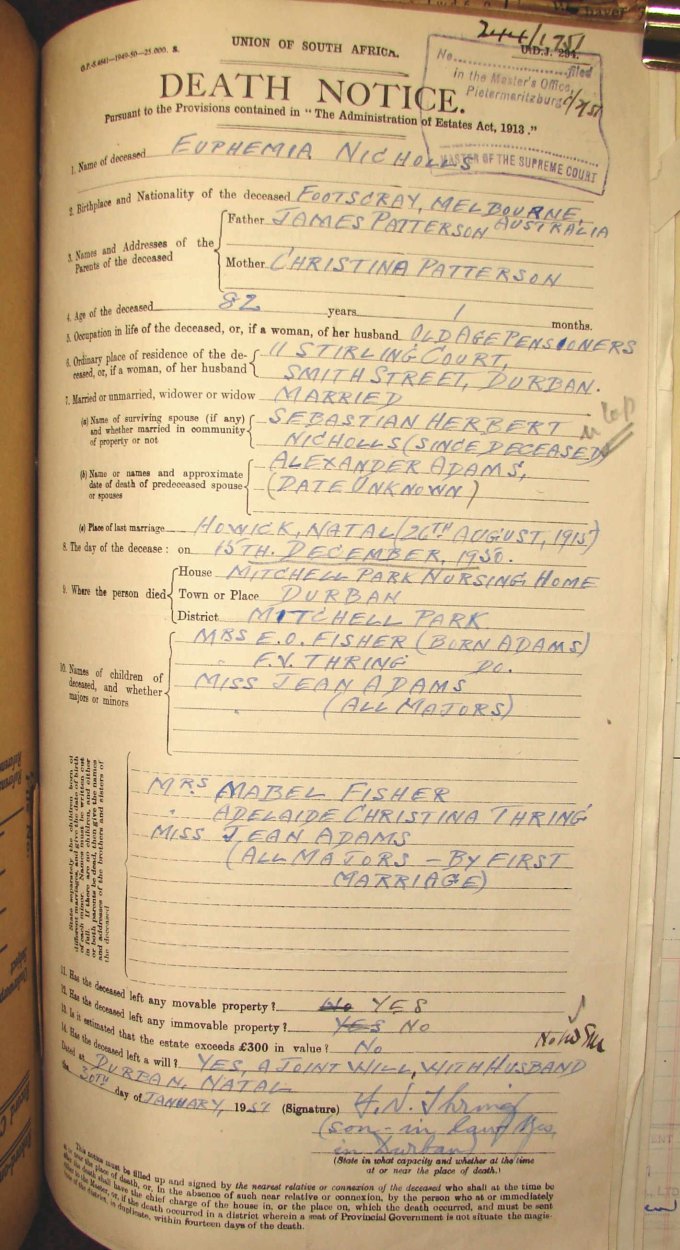 244/1751
G.P.-S.4641—1949-50—25,000. S.
UNION OF SOUTH AFRICA.
U.D.J. 294.
No. filed
in the Master's Office,
Pietermaritzburg
MASTER OF THE SUPREME COURT
DEATH NOTICE.
Pursuant to the Provisions contained in "The Administration of Estates Act, 1913."
1. Name of deceased EUPHEMIA NICHOLLS
2. Birthplace and Nationality of the deceased FOOTSCRAY, MELBOURNE, AUSTRALIA
3. Names and Addresses of the Parents of the deceased
Father JAMES PATTERSON
Mother CHRISTINA PATTERSON
4. Age of the deceased 82 years 1 months.
5. Occupation in life of the deceased, or, if a woman, of her husband OLD AGE PENSIONERS
6. Ordinary place of residence of the deceased, or, if a woman, of her husband 11 STIRLING COURT,
SMITH STREET, DURBAN.
7. Married or unmarried, widower or widow MARRIED
(a) Name of surviving spouse (if any) and whether married in community of property or not SEBASTIAN HERBERT
NICHOLLS (SINCE DECEASED)
in cop
(b) Name or names and approximate date of death of predeceased spouse or spouses ALEXANDER ADAMS,
(DATE UNKNOWN)
(c) Place of last marriage HOWICK, NATAL (26TH AUGUST, 1915)
8. The day of the decease: on 15TH. DECEMBER, 1950.
9. Where the person died
House MITCHELL PARK NURSING HOME
Town or Place DURBAN
District MITCHELL PARK
10. Names of children of deceased, and whether majors or minors
MRS E.O. FISHER (BORN ADAMS)
" F.V. THRING DO.
MISS JEAN ADAMS
(ALL MAJORS)
State separately the children born of
different marriages, and give the date of birth
of each minor. Names must be written out
in full. If there are no children, and either
or both parents be dead, then give the names
and addresses of the brothers and sisters of
the deceased
MRS MABEL FISHER
" ADELAIDE CHRISTINA THRING
MISS JEAN ADAMS
(ALL MAJORS – BY FIRST
MARRIAGE)
11. Has the deceased left any movable property? No YES
12. Has the deceased left any immovable property? YES NO
13. Is it estimated that the estate exceeds £300 in value? No
14. Has the deceased left a will? YES, A JOINT WILL, WITH HUSBAND
Dated at DURBAN, NATAL
the 30TH day of JANUARY, 1951 (Signature) Thring
(son-in-law
in Durban)
(State in what capacity and whether at the time
at or near the place of death.)
This notice must be filled up and signed by the nearest relative or connexion of the deceased who shall at the time be
at or near the place of death, or, in the absence of such near relative or connexion, by the person who at or immediately
after the death shall have the chief charge of the house in, or the place on, which the death occurred, and must be sent
either to the Master, or, if the death occurred in a district wherein a seat of Provincial Government is not situate the magis-
trate of the district, in duplicate, within fourteen days of the death.